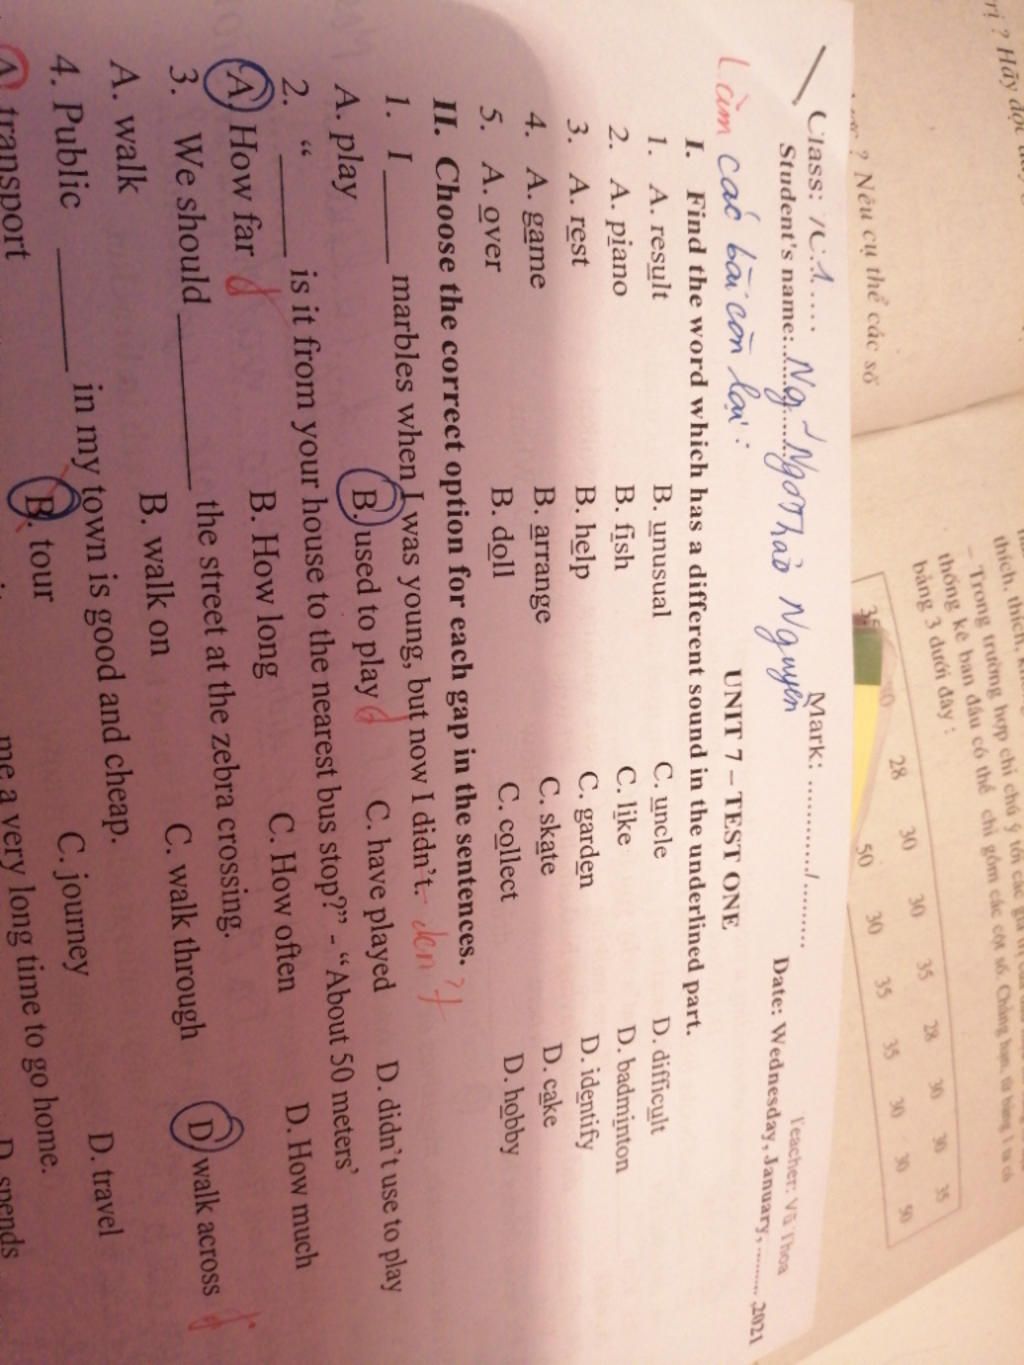 Class: 7C1.... Mark: ............/......... Teacher: Vũ Thoa
Student's name:......Ng~ Ngô Thảo Nguyên Date: Wednesday, January, ......... ,2021
UNIT 7 – TEST ONE
Làm các bài còn lại:
I. Find the word which has a different sound in the underlined part.
1. A. result B. unusual C. uncle D. difficult
2. A. piano B. fish C. like D. badminton
3. A. rest B. help C. garden D. identify
4. A. game B. arrange C. skate D. cake
5. A. over B. doll C. collect D. hobby
II. Choose the correct option for each gap in the sentences.
1. I _____ marbles when I was young, but now I didn't.
A. play B. used to play C. have played D. didn't use to play
2. “ ______ is it from your house to the nearest bus stop?” - “About 50 meters’
A. How far B. How long C. How often D. How much
3. We should __________ the street at the zebra crossing.
A. walk B. walk on C. walk through D. walk across
4. Public _______ in my town is good and cheap.
A. transport B. tour C. journey D. travel
me a very long time to go home.
D. spends
? Nêu cụ thể các số
rị ? Hãy đọc
– Trong trường hợp chỉ chú ý tới các giá trị
thống kê ban đầu có thể chỉ gồm các cột số. Chẳng hạn, từ bảng 1 ta có
bảng 3 dưới đây :
35 28 30 30 35 28 30 30 35
50 30 35 35 30 30 50